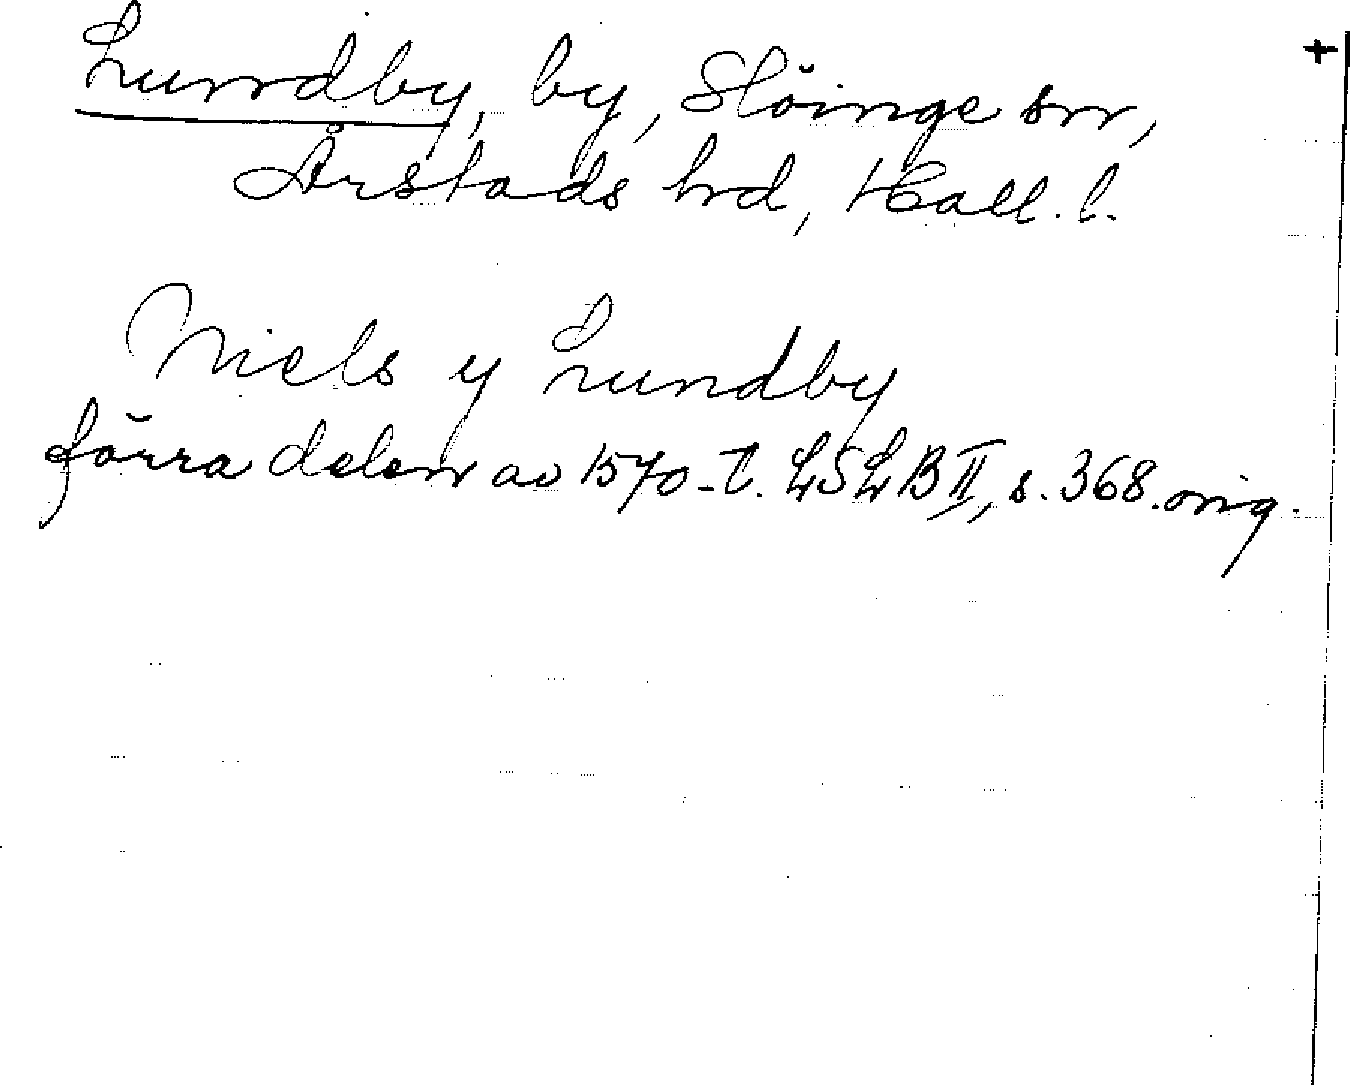 Lunndby, by, Slöinge sn,
Årstads hrd, Hall. l.
Niels y Lundby
förra delen av 1570-t. LSLB II, s. 368. orig.